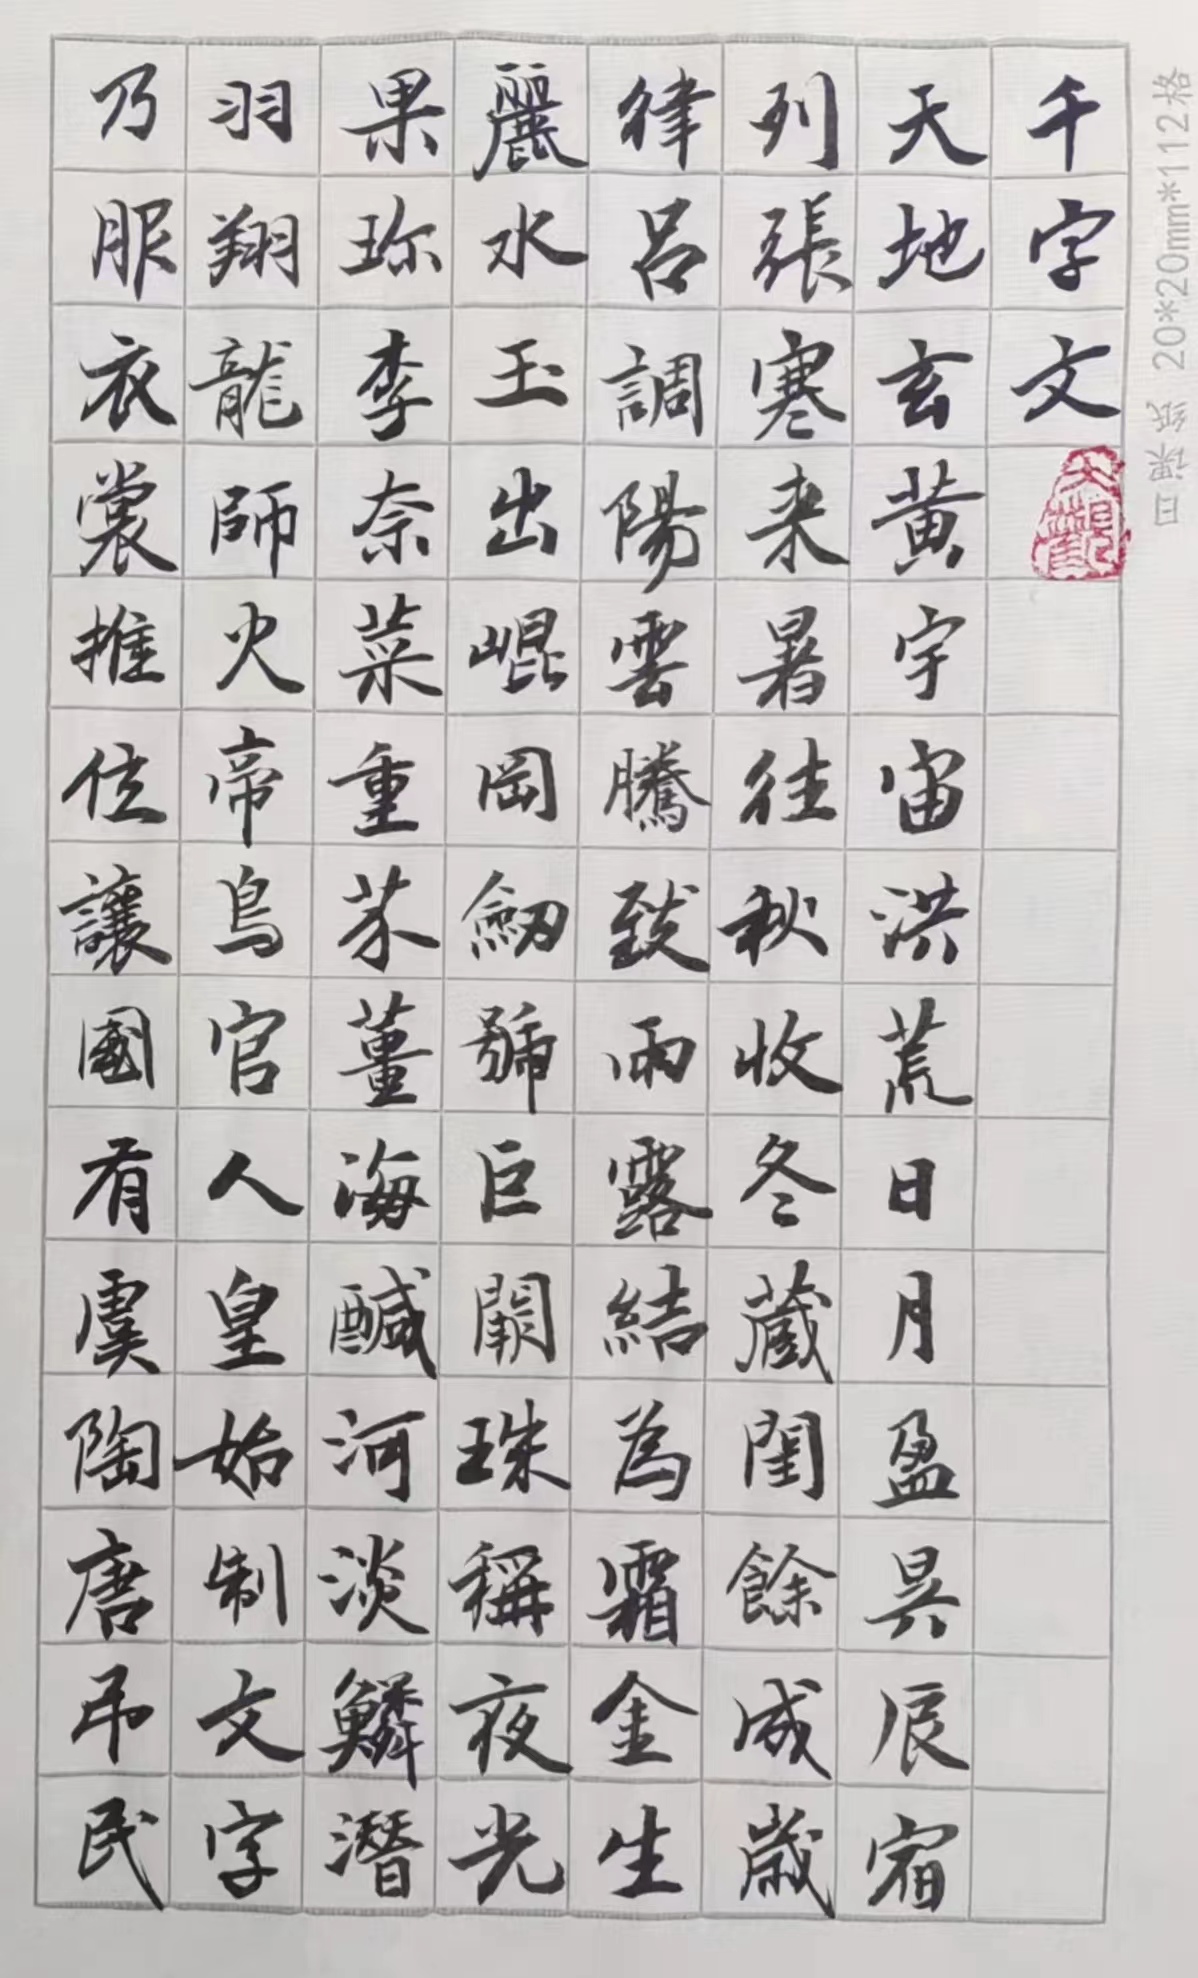 千字文
天地玄黃宇宙洪荒日月盈昃辰宿
列張寒来暑往秋收冬藏閏餘成歲
律呂調陽雲騰致雨露結為霜金生
麗水玉出崐岡劒號巨闕珠稱夜光
果珎李柰菜重芥薑海鹹河淡鱗潛
羽翔龍師火帝鳥官人皇始制文字
乃服衣裳推位讓國有虞陶唐弔民
大觀
日课纸 20*20mm*112格